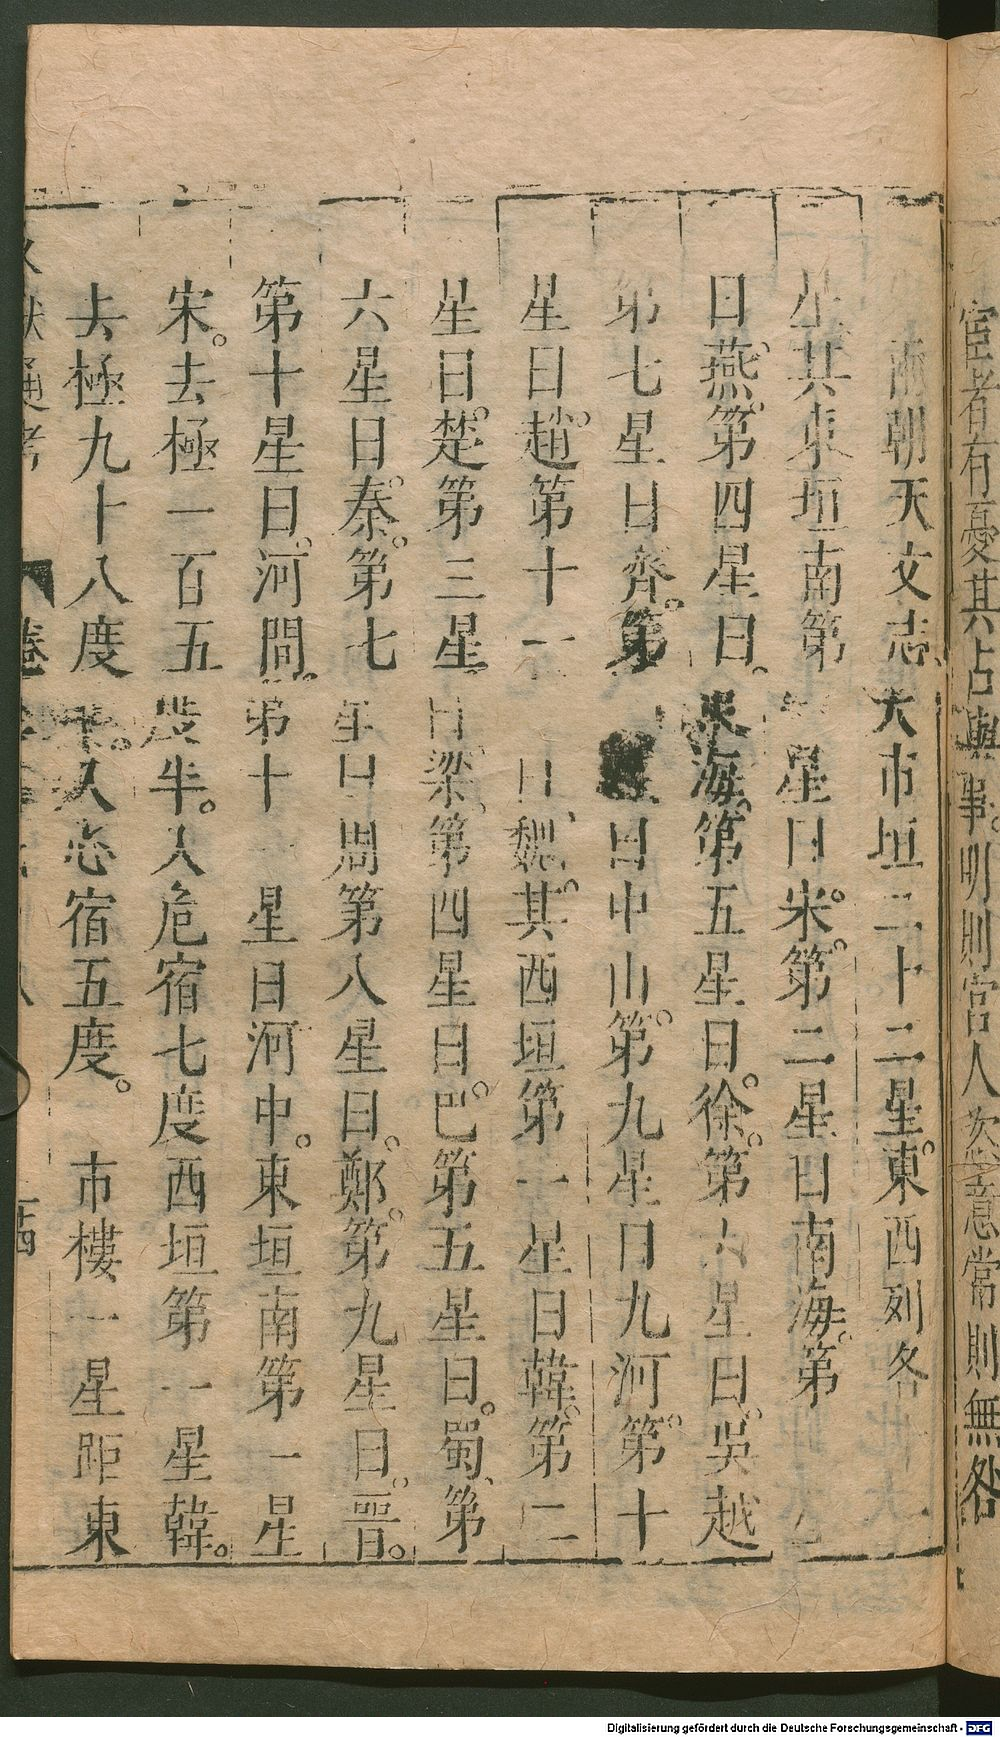 宦者有憂其占與事明則宮人恣意常則無咎
朝天文志天市垣二十二星東西列各
星其東垣南第 星曰宋第二星曰南海第
曰燕第四星曰東海第五星曰徐第六星曰吳越
第七星曰齊第 曰中山第九星曰九河第十
星曰趙第十一 曰魏其西垣第一星曰韓第二
星曰楚第三星曰梁第四星曰巴第五星曰蜀第
六星曰秦第七星曰周第八星曰鄭第九星曰晉
第十星曰河間第十一星曰河中東垣南第一星
宋去極一百五度半入危宿七度西垣第一星韓
去極九十八度 入心宿五度 市樓一星距東
文獻通考 卷 十四
Digitalisierung gefördert durch die Deutsche Forschungsgemeinschaft - DFG